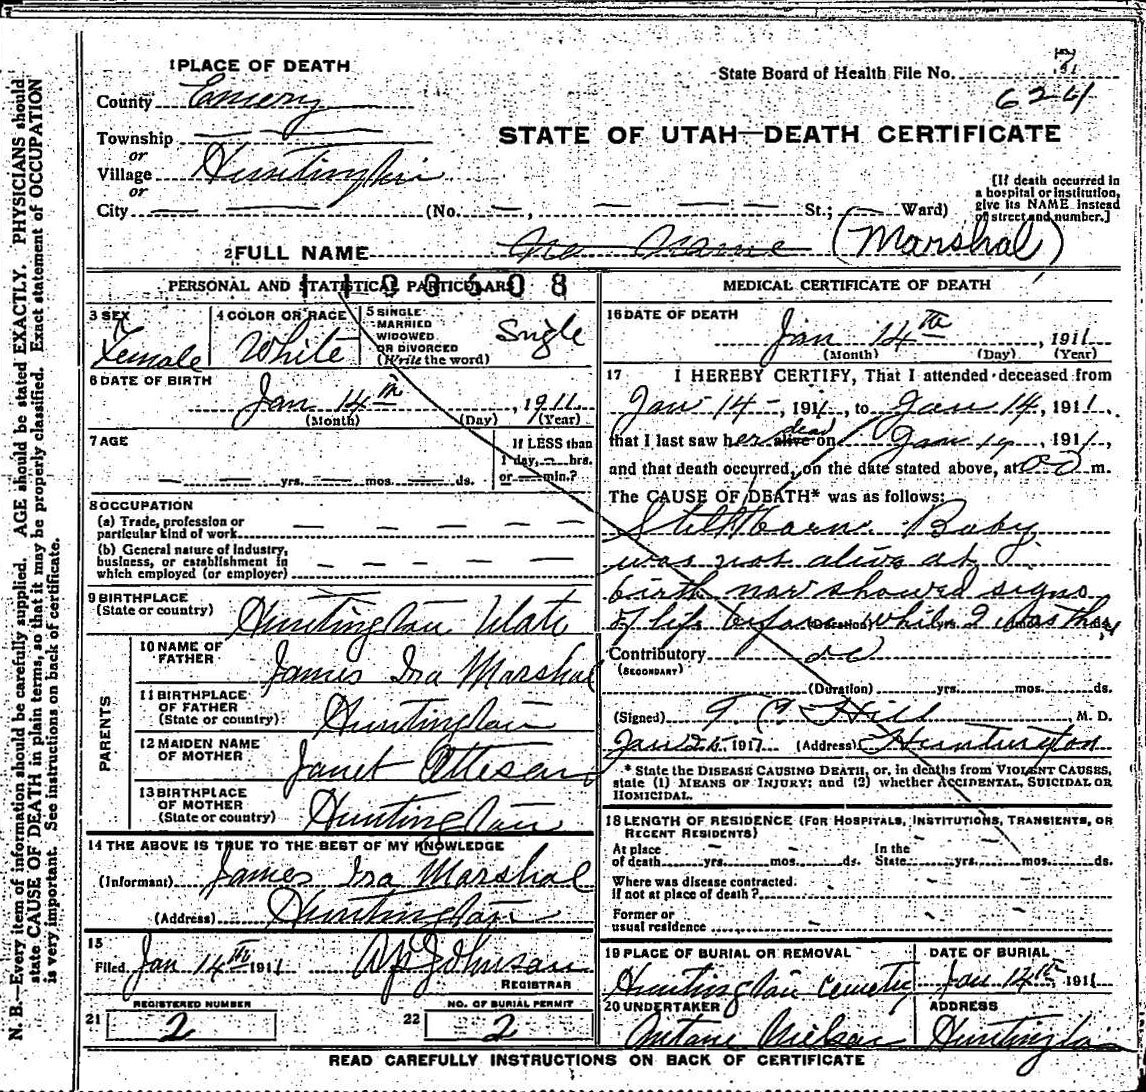 1 PLACE OF DEATH
State Board of Health File No. 7
County Emery
624
Township
or
STATE OF UTAH—DEATH CERTIFICATE
Village Huntington
or
City (No. , St.; Ward)
[If death occurred in
a hospital or institution,
give its NAME instead
of street and number.]
2 FULL NAME No Name (Marshal)
PERSONAL AND STATISTICAL PARTICULARS
1100608
3 SEX
Female
4 COLOR OR RACE
White
5 SINGLE
MARRIED
WIDOWED
OR DIVORCED
(Write the word)
Single
6 DATE OF BIRTH
Jan 14th, 1911
(Month) (Day) (Year)
7 AGE
yrs. mos. ds.
If LESS than
1 day, hrs.
or min.?
8 OCCUPATION
(a) Trade, profession or
particular kind of work
(b) General nature of industry,
business, or establishment in
which employed (or employer)
9 BIRTHPLACE
(State or country) Huntington Utah
PARENTS
10 NAME OF
FATHER James Ira Marshal
11 BIRTHPLACE
OF FATHER
(State or country) Huntington
12 MAIDEN NAME
OF MOTHER Janet
13 BIRTHPLACE
OF MOTHER
(State or country) Huntington
14 THE ABOVE IS TRUE TO THE BEST OF MY KNOWLEDGE
(Informant) James Ira Marshal
(Address) Huntington
15
Filed Jan 14th 1911 Johnson
REGISTRAR
REGISTERED NUMBER
21 2
NO. OF BURIAL PERMIT
22 2
MEDICAL CERTIFICATE OF DEATH
16 DATE OF DEATH
Jan 14th, 1911
(Month) (Day) (Year)
17 I HEREBY CERTIFY, That I attended deceased from
Jan 14, 1911, to Jan 14, 1911,
dead
that I last saw her alive on Jan 14, 1911,
and that death occurred, on the date stated above, at m.
The CAUSE OF DEATH* was as follows:
Still born. Baby
was not alive at
birth nor showed signs
of life before while I was there
(Duration) yrs. mos. ds.
Contributory
(SECONDARY)
(Duration) yrs. mos. ds.
(Signed) Hill M. D.
Jan 1911 (Address) Huntington
* State the DISEASE CAUSING DEATH, or, in deaths from VIOLENT CAUSES,
state (1) MEANS OF INJURY; and (2) whether ACCIDENTAL, SUICIDAL OR
HOMICIDAL.
18 LENGTH OF RESIDENCE (FOR HOSPITALS, INSTITUTIONS, TRANSIENTS, OR
RECENT RESIDENTS)
At place In the
of death yrs. mos. ds. State yrs. mos. ds.
Where was disease contracted.
If not at place of death?
Former or
usual residence
19 PLACE OF BURIAL OR REMOVAL
Huntington
DATE OF BURIAL
Jan 14th, 1911
20 UNDERTAKER
Nielson
ADDRESS
Huntington
READ CAREFULLY INSTRUCTIONS ON BACK OF CERTIFICATE
N. B.—Every item of information should be carefully supplied. AGE should be stated EXACTLY. PHYSICIANS should
state CAUSE OF DEATH in plain terms, so that it may be properly classified. Exact statement of OCCUPATION
is very important. See instructions on back of certificate.